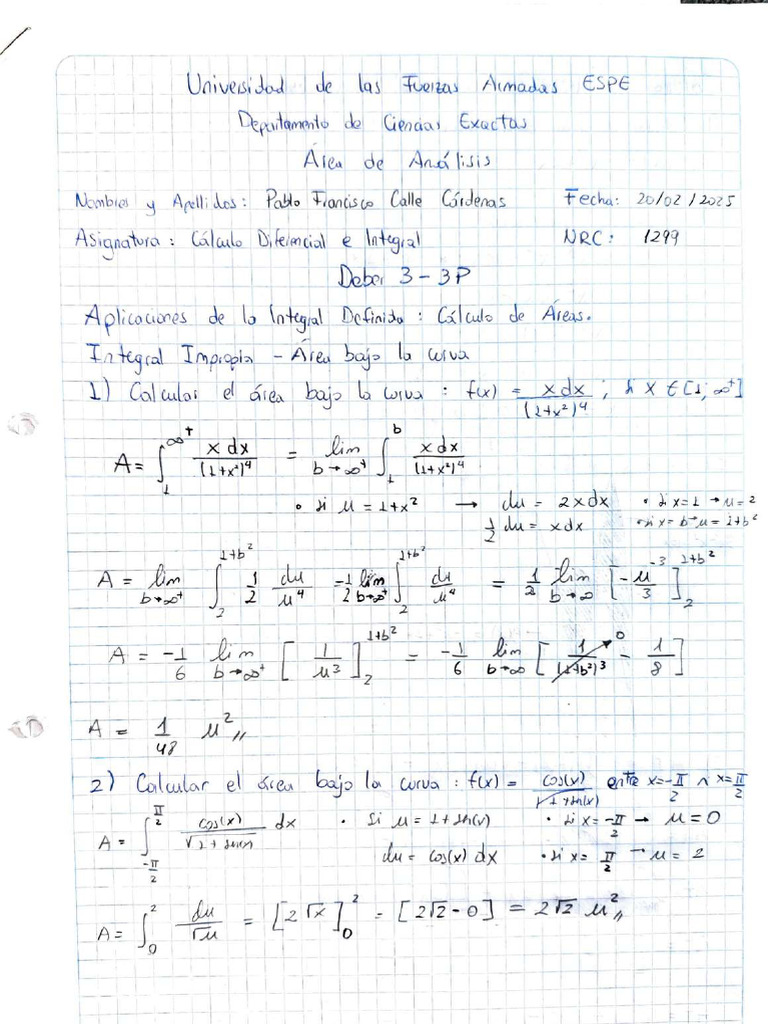 Universidad de las Fuerzas Armadas ESPE
Departamento de Ciencias Exactas
Área de Análisis
Nombres y Apellidos: Pablo Francisco Calle Córdenas Fecha: 20/02/2025
Asignatura: Cálculo Diferencial e Integral NRC: 1299
Deber 3 - 3P
Aplicaciones de la Integral Definida: Cálculo de Áreas.
Integral Impropia - Área bajo la curva
1) Calcular el área bajo la curva: f(x) = x dx/(1+x²)⁴; si x ∈ [1; ∞⁺]
A = ∫₁^∞⁺ x dx/(1+x²)⁴ = lim b→∞⁺ ∫₁^b x dx/(1+x²)⁴
• si u = 1+x² → du = 2x dx • si x=1 → u=2
1/2 du = x dx • si x=b → u=1+b²
A = lim b→∞⁺ ∫₂^(1+b²) 1/2 du/u⁴ = 1/2 lim b→∞⁺ ∫₂^(1+b²) du/u⁴ = 1/2 lim b→∞ [-u⁻³/3]₂^(1+b²)
A = -1/6 lim b→∞⁺ [1/u³]₂^(1+b²) = -1/6 lim b→∞ [1/(1+b²)³ → 0 - 1/8]
A = 1/48 u² //
2) Calcular el área bajo la curva: f(x) = cos(x)/√(1+sen(x)) entre x=-π/2 ∧ x=π/2
A = ∫_(-π/2)^(π/2) cos(x)/√(1+sen(x)) dx • Si u = 1+sen(x) • si x=-π/2 → u=0
du = cos(x) dx • si x=π/2 → u=2
A = ∫₀² du/√u = [2√x]₀² = [2√2 - 0] = 2√2 u² //